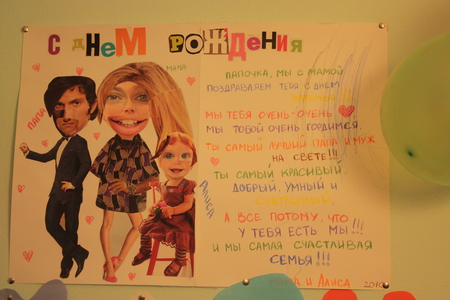 С ДНЕМ РОЖДЕНИЯ
МАМА
ПАПА
АЛИСА
ПАПОЧКА, МЫ С МАМОЙ
ПОЗДРАВЛЯЕМ ТЕБЯ С ДНЕМ
МЫ ТЕБЯ ОЧЕНЬ-ОЧЕНЬ
МЫ ТОБОЙ ОЧЕНЬ ГОРДИМСЯ,
ТЫ САМЫЙ ЛУЧШИЙ ПАПА И МУЖ
НА СВЕТЕ!!!
ТЫ САМЫЙ КРАСИВЫЙ,
ДОБРЫЙ, УМНЫЙ И
А ВСЕ ПОТОМУ, ЧТО
У ТЕБЯ ЕСТЬ МЫ!!!
И МЫ САМАЯ СЧАСТЛИВАЯ
СЕМЬЯ!!!
И АЛИСА